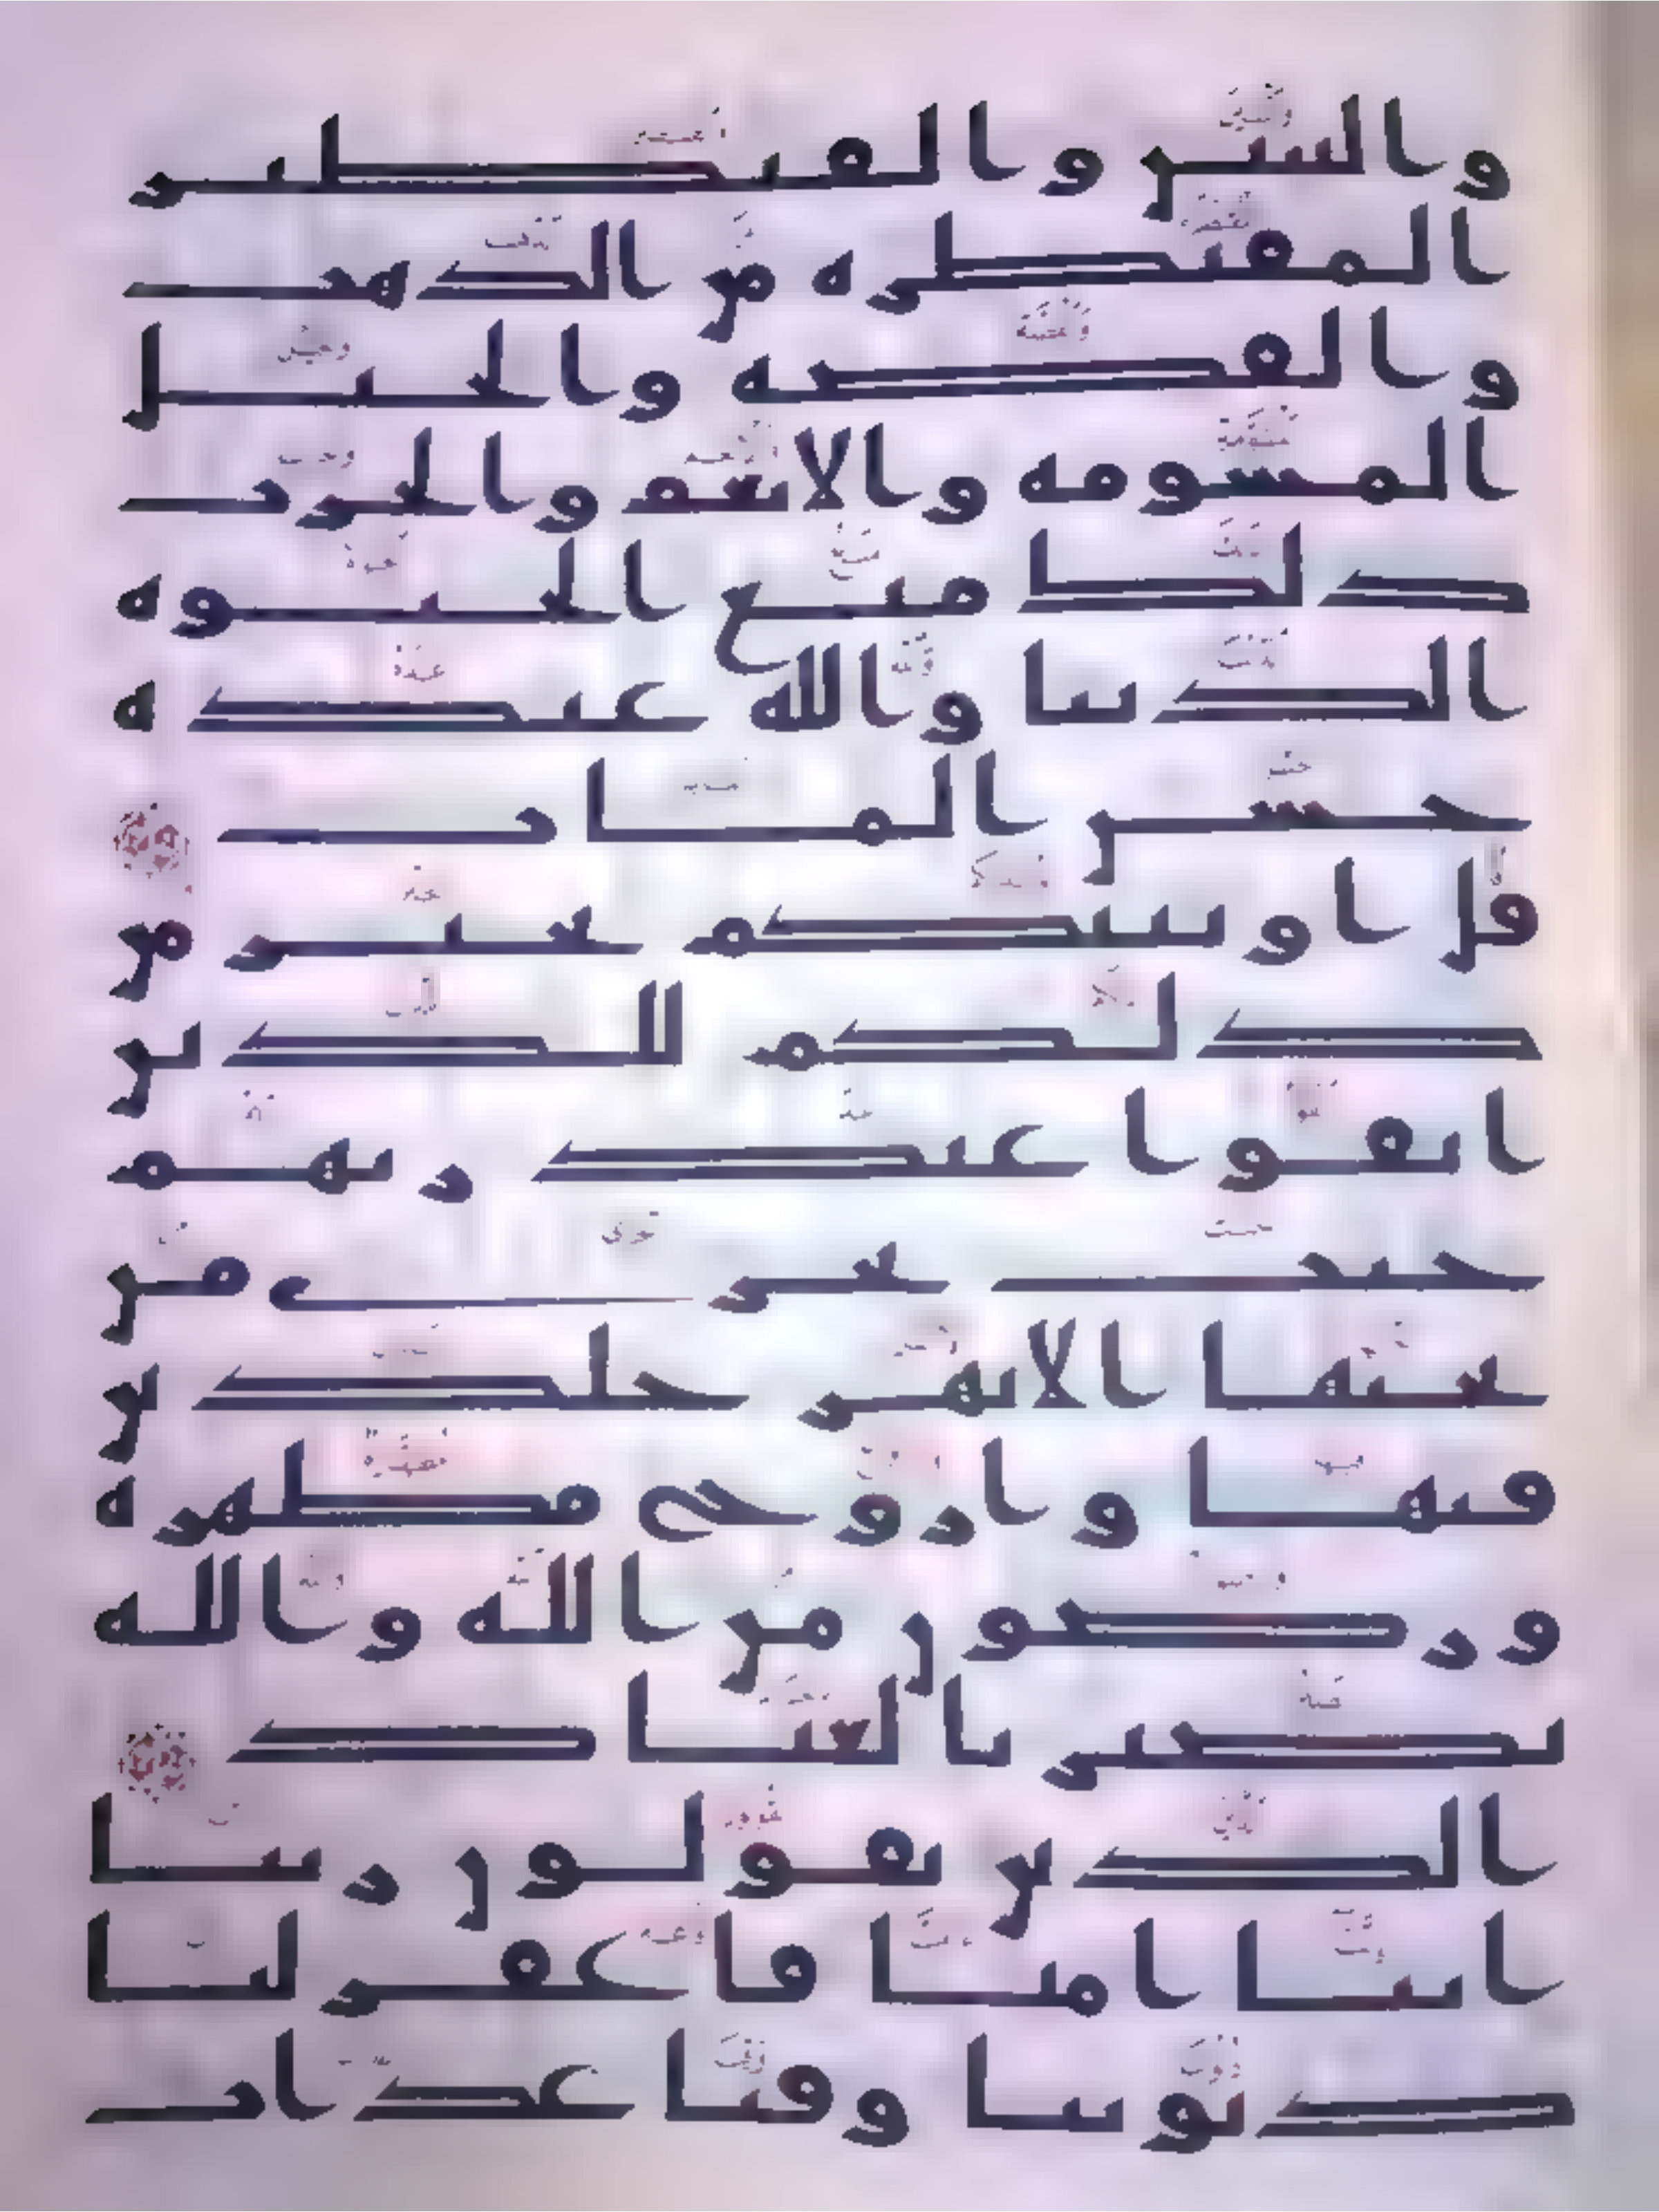 والبنين والقنطير
المقنطرة من الذهب
والفضة والخيل
المسومة والانعم والحرث
ذلك متع الحيوة
الدنيا والله عنده
حسن الماب
قل اونبئكم بخير من
ذلكم للذين
اتقوا عند ربهم
جنت تجرى من
تحتها الانهر خلدين
فيها وازوج مطهرة
ورضون من الله والله
بصير بالعباد
الذين يقولون ربنا
اننا امنا فاغفر لنا
ذنوبنا وقنا عذاب